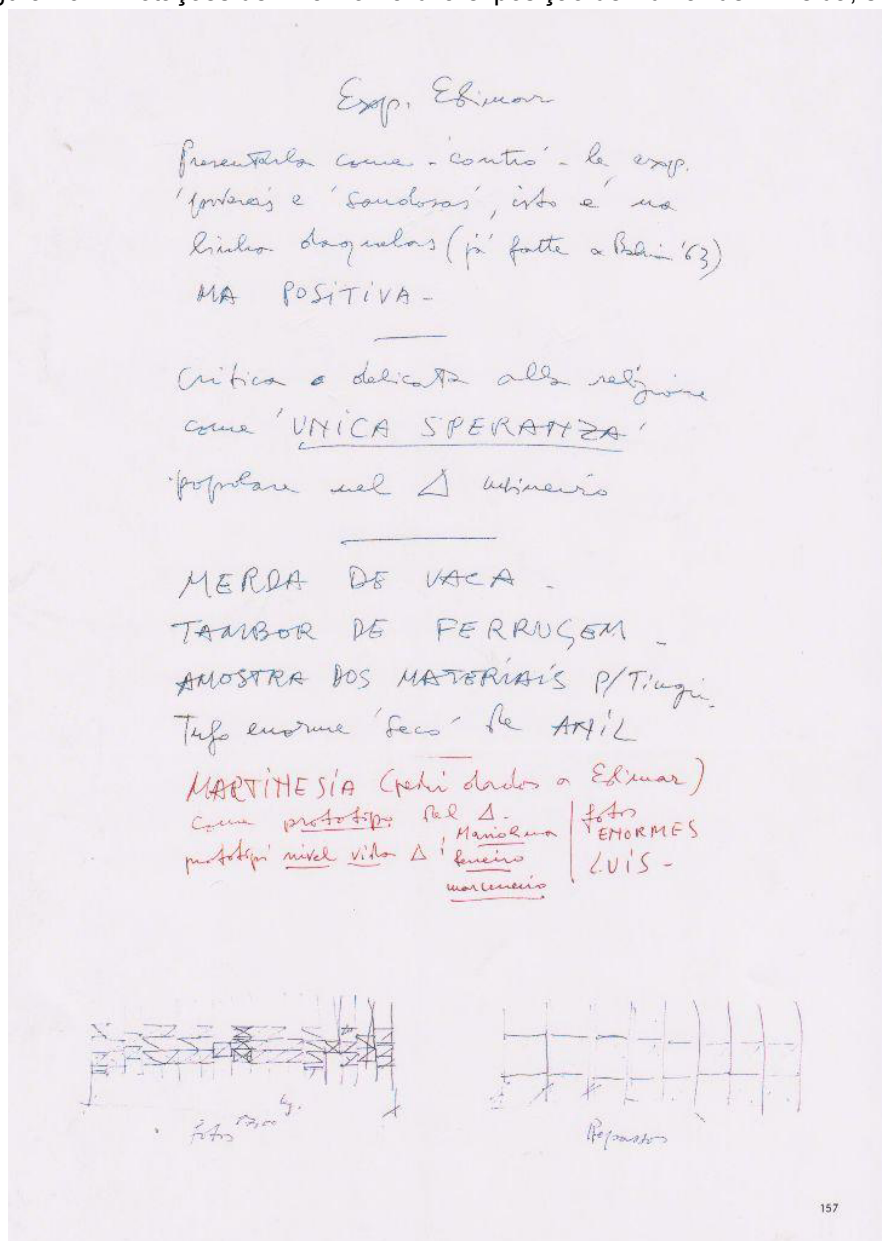 Exp. Edimar
Presentarla come - contro - le exp.
e 'saudosas', isto é na
linha daquelas (já fatte a Bahia '63)
MA POSITIVA -
Critica e delicata alla religione
come 'UNICA SPERANZA'
popolare nel Δ mineiro
MERDA DE VACA -
TAMBOR DE FERRUGEM -
AMOSTRA DOS MATERIAIS P/Tingir -
Tufo enorme 'seco' de ANIL
MARTINESIA (pedir dados a Edimar)
come prototipo del Δ.
prototipi nivel vida Δ :
marceneiro
fotos
ENORMES
LUÍS -
fotos
Repassos
157